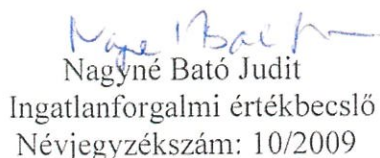 Nagyné Bató Judit
Ingatlanforgalmi értékbecslő
Névjegyzékszám: 10/2009